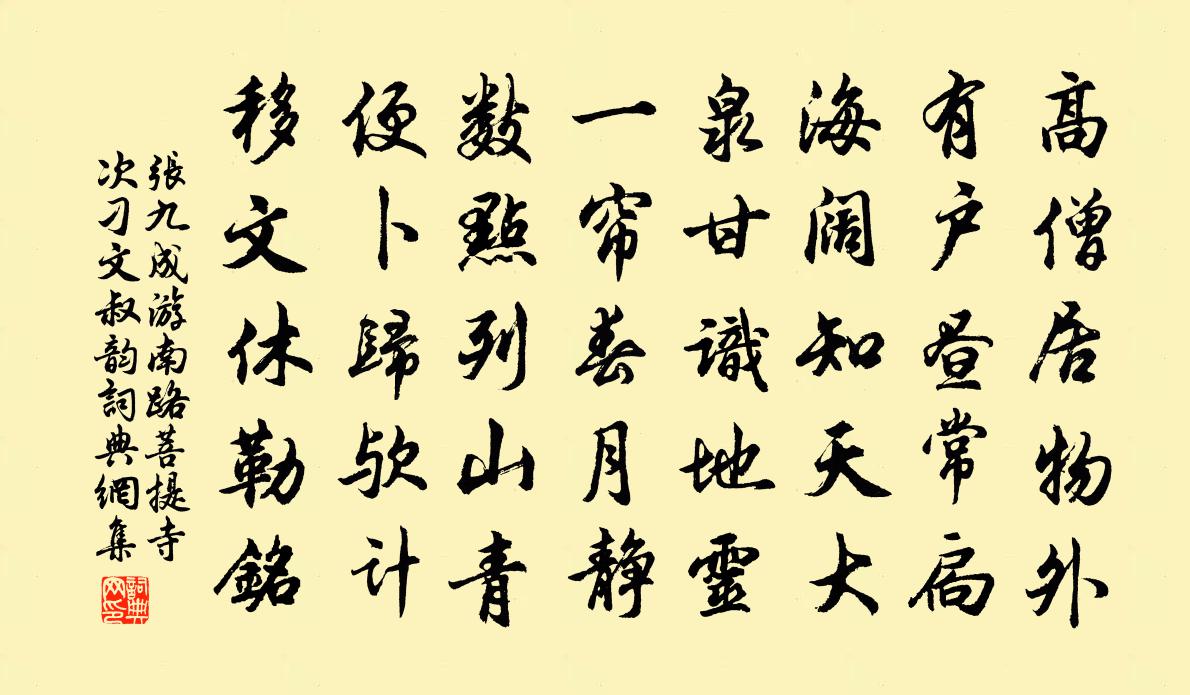 高僧居物外
有户昼常扃
海阔知天大
泉甘識地靈
一帘春月静
数點列山青
便卜歸欤计
移文休勒銘
張九成游南路菩提寺
次刁文叔韵詞典網集
詞典网印